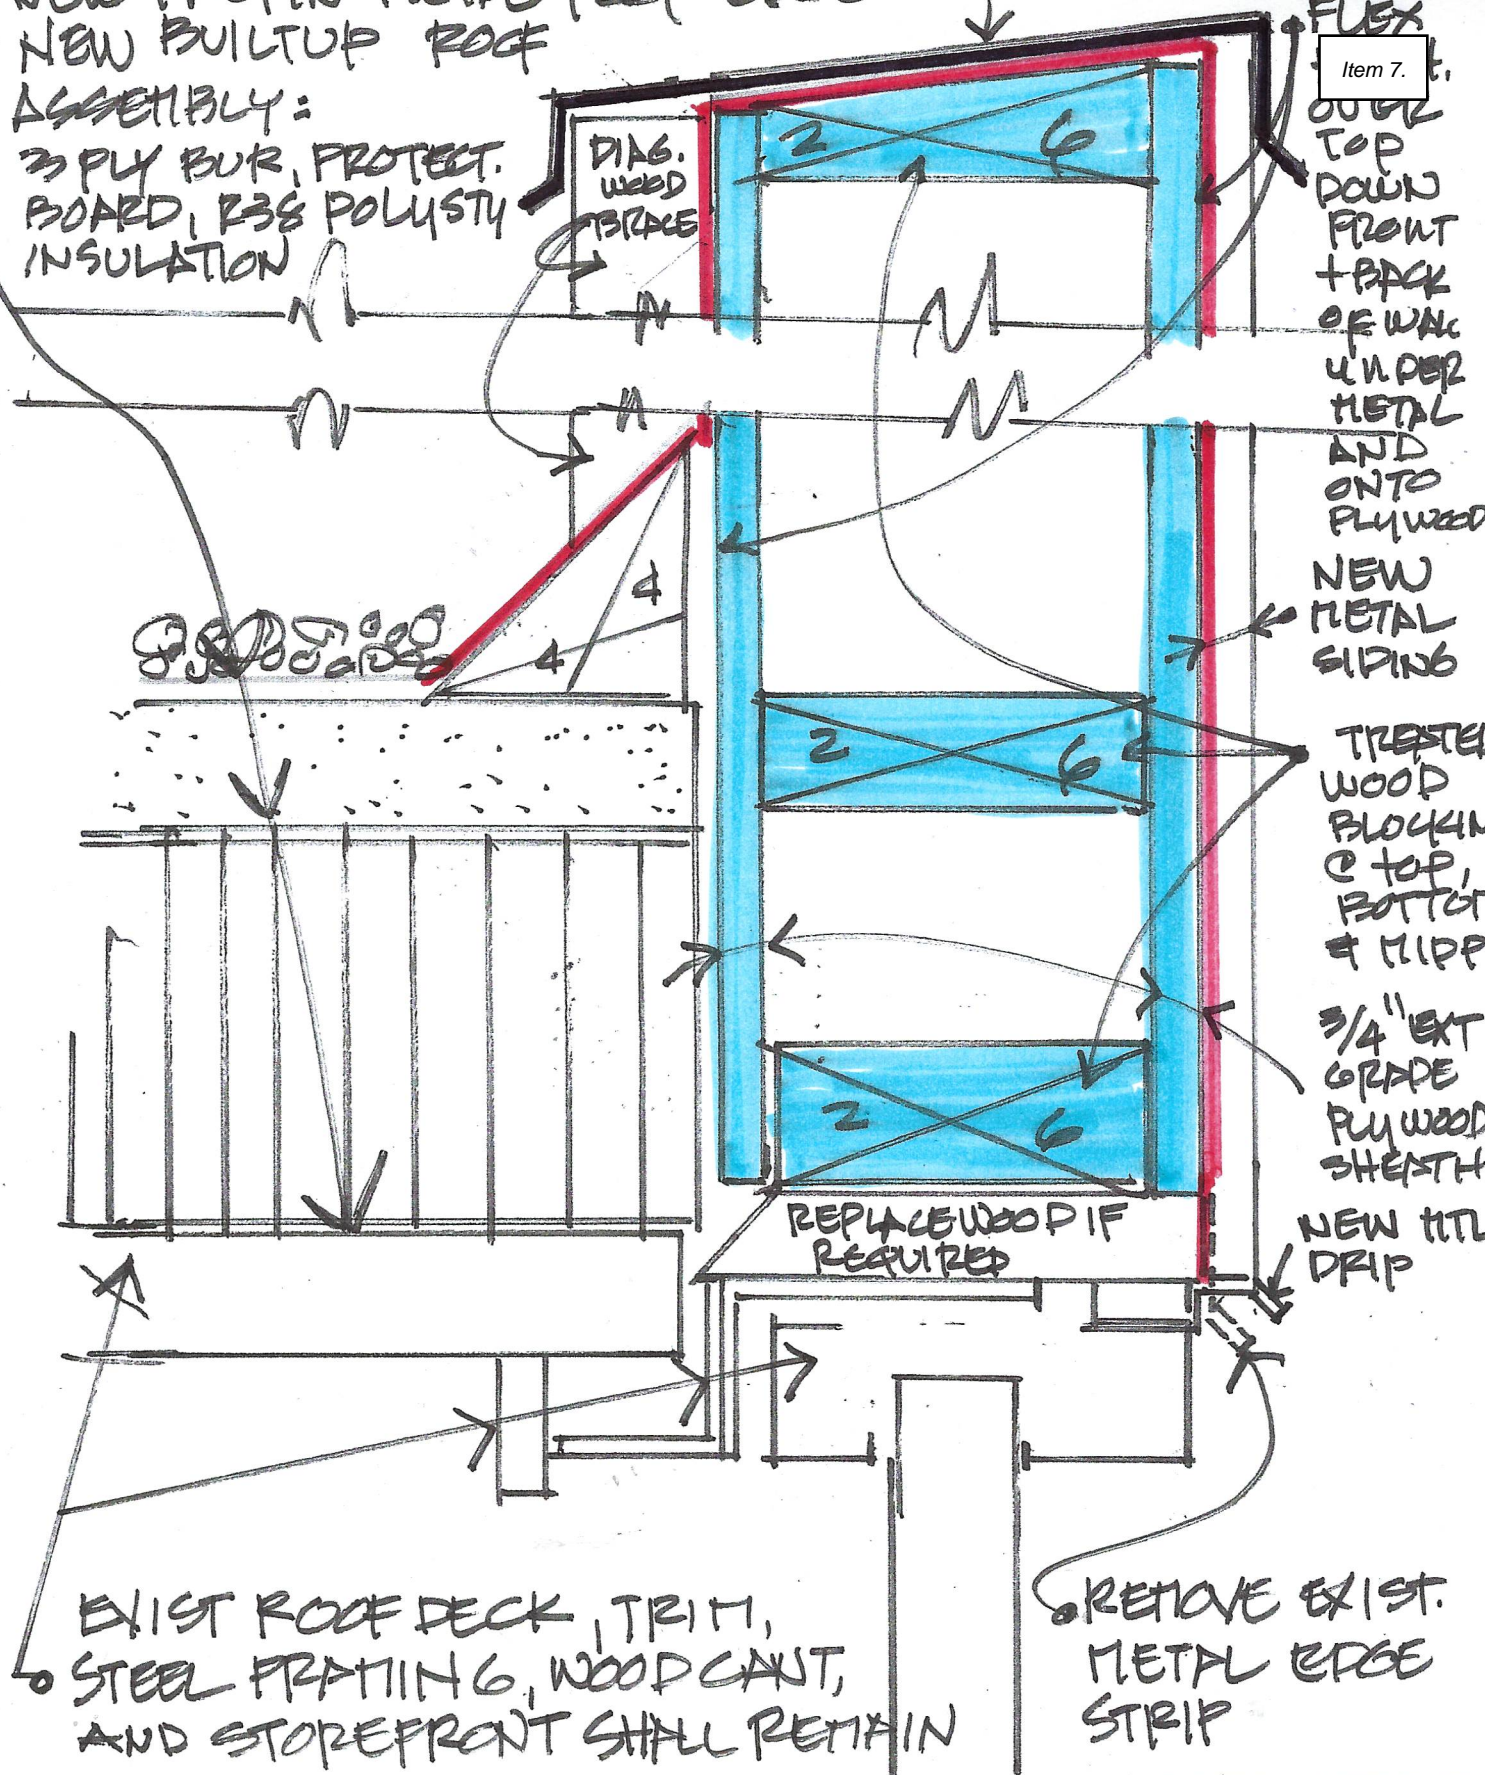 NEW BUILTUP ROOF
ASSEMBLY:
3 PLY BUR, PROTECT.
BOARD, R38 POLYSTY
INSULATION
DIAG.
WOOD
BRACE
2 6
FLEX
Item 7.
OVER
TOP
DOWN
FRONT
+ BACK
OF WALL
UNDER
METAL
AND
ONTO
PLYWOOD
NEW
METAL
SIDING
4
4
2 6
TREATED
WOOD
BLOCKIN
@ TOP,
BOTTOM
& MIDD
3/4" EXT
GRADE
PLYWOOD
SHEATH
2 6
REPLACE WOOD IF
REQUIRED
NEW MTL
DRIP
EXIST ROOF DECK, TRIM,
STEEL FRAMING, WOOD CANT,
AND STOREFRONT SHALL REMAIN
REMOVE EXIST.
METAL EDGE
STRIP